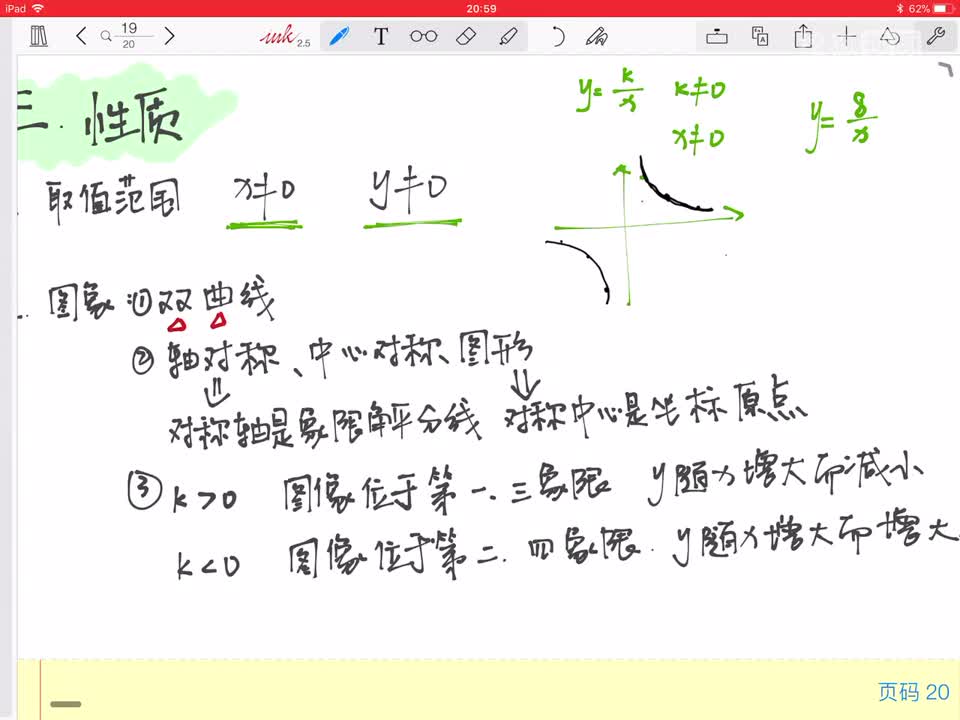 iPad 20:59 62%
19
20
2.5
三. 性质
y=k/x k≠0
x≠0
y=8/x
取值范围 x≠0 y≠0
图象 ① 双曲线
② 轴对称、中心对称、图形
对称轴是象限角平分线 对称中心是坐标原点
③ k>0 图像位于第一.三象限 y随x增大而减小
k<0 图像位于第二.四象限. y随x增大而增大.
页码 20